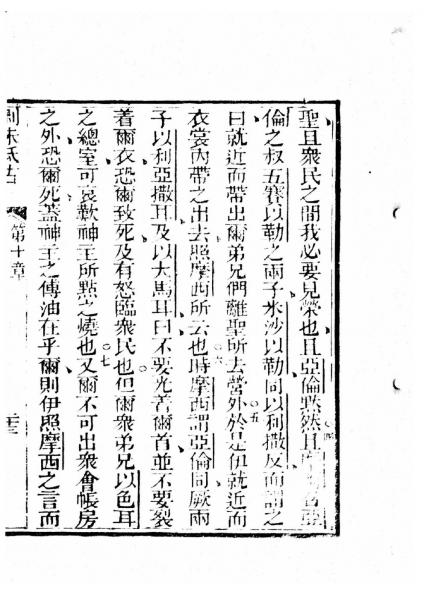 聖且衆民之間我必要見榮也且亞倫黙然且
倫之叔五賽以勒之兩子米沙以勒同以利撒反而謂之
曰就近而帶出爾弟兄們離聖所去營外於是伊就近而
衣裳內帶之出去照摩西所云也時摩西謂亞倫同厥兩
子以利亞撒耳及以大馬耳曰不要光着爾首並不要裂
着爾衣恐爾致死及有怒臨衆民也但爾衆弟兄以色耳
之總室可哀歎神主所㸃之燒也又爾不可出衆會帳房
之外恐爾死蓋神主之傅油在乎爾則伊照摩西之言而
第十章